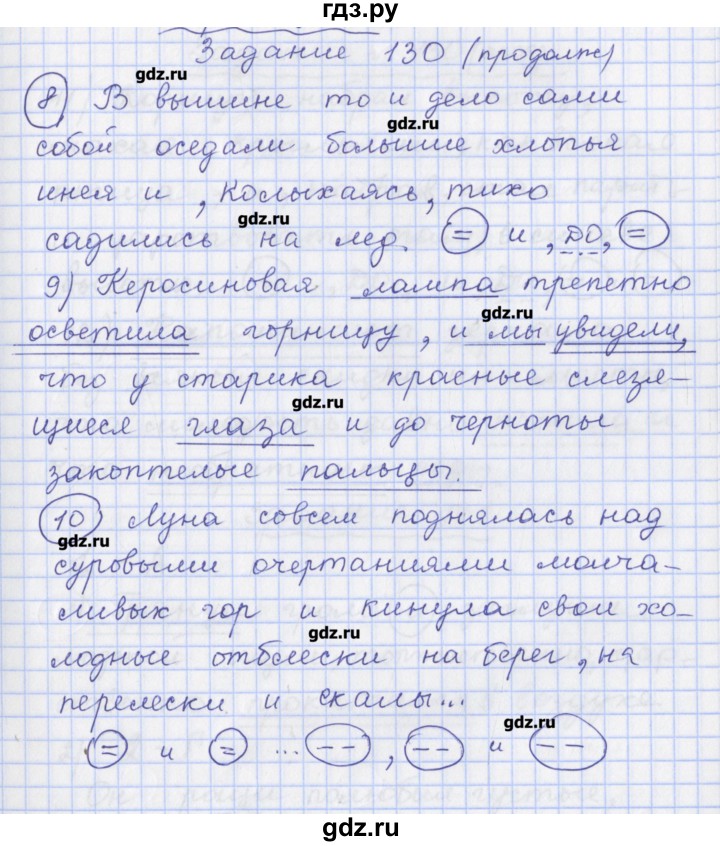 гдз.ру
Задание 130 (продолж)
gdz.ru
8) В вышине то и дело сами
gdz.ru
собой оседали большие хлопья
инея и , колыхаясь, тихо
gdz.ru
садились на лед. = и , ДО, =
9) Керосиновая лампа трепетно
gdz.ru
осветила горницу, и мы увидели,
что у старика красные слезя-
gdz.ru
щиеся глаза и до черноты
закоптелые пальцы.
10 Луна совсем поднялась над
gdz.ru
суровыми очертаниями молча-
ливых гор и кинула свои хо-
gdz.ru
лодные отблески на берег, на
перелески и скалы...
gdz.ru
= и = ... -- , -- и --
gdz.ru